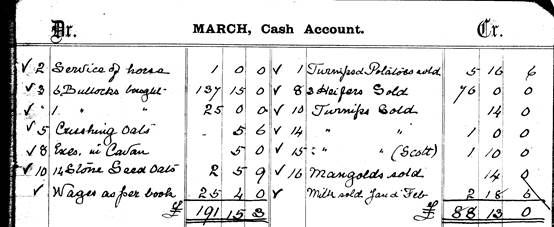 Dr. MARCH, Cash Account. Cr.
✓ 2 Service of horse 1 0 0 ✓ 1 Turnips & Potatoes sold 5 16 6
✓ 3 6 Bullocks bought 137 15 0 ✓ 8 3 Heifers Sold 76 0 0
✓ " 1 " " 25 0 0 ✓ 10 Turnips Sold 14 0
✓ 5 Crushing Oats - 5 6 ✓ 14 " " 1 0 0
✓ 8 Exes. in Cavan 5 0 ✓ 15 " " (Scott) 1 10 0
✓ 10 14 Stone Seed Oats 2 5 9 ✓ 16 Mangolds sold 14 0
✓ Wages as per book 25 4 0 ✓ Milk sold Jan & Feb 2 18 6
£ 191 15 3 £ 88 13 0